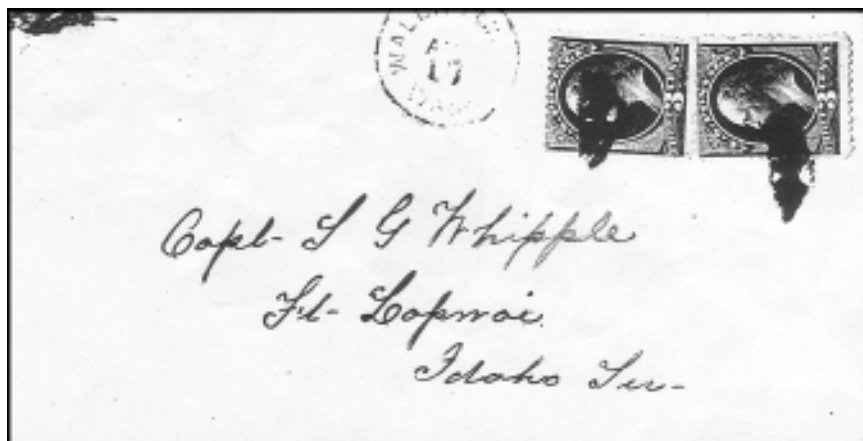 17
3 3
Capt- S G Whipple
Ft- Lapwai.
Idaho Ter-